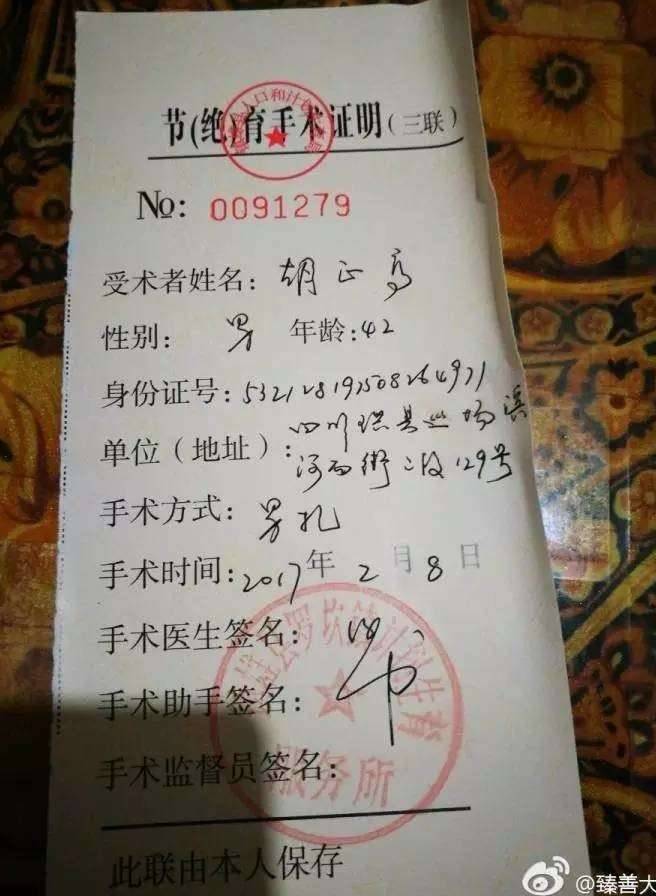 节(绝)育手术证明(三联)
人口和计
No: 0091279
受术者姓名: 胡正高
性别: 男 年龄: 42
身份证号:
单位(地址): 四川珙县巡场
河西街二段129号
手术方式: 男扎
手术时间: 2017年 2 月 8 日
手术医生签名:
手术助手签名:
手术监督员签名:
县罗坎镇计划生育
服务所
此联由本人保存
@臻善大